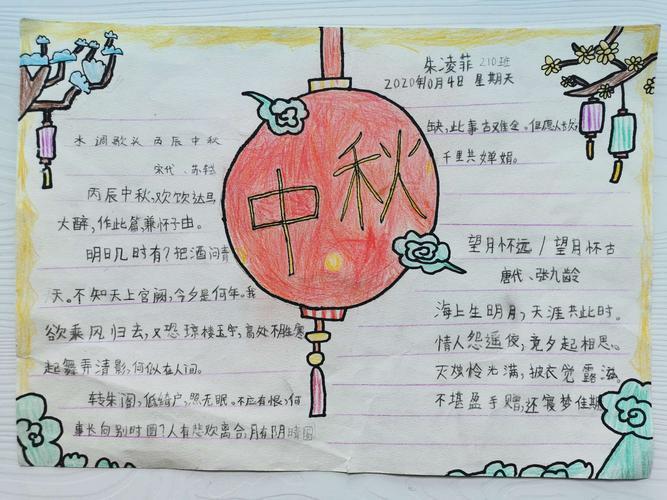 中秋
朱凌菲 210班
2020年10月4日 星期天
水调歌头 丙辰中秋
宋代、苏轼
丙辰中秋,欢饮达旦
大醉,作此篇,兼怀子由。
明日几时有?把酒问青
天。不知天上宫阙,今夕是何年。我
欲乘风归去,又恐琼楼玉宇,高处不胜寒
起舞弄清影,何似在人间。
转朱阁,低绮户,照无眠。不应有恨,何
事长向别时圆?人有悲欢离合,月有阴晴圆
缺,此事古难全。但愿人长久,
千里共婵娟。
望月怀远/望月怀古
唐代、张九龄
海上生明月,天涯共此时。
情人怨遥夜,竟夕起相思。
灭烛怜光满,披衣觉露滋
不堪盈手赠,还寝梦佳期